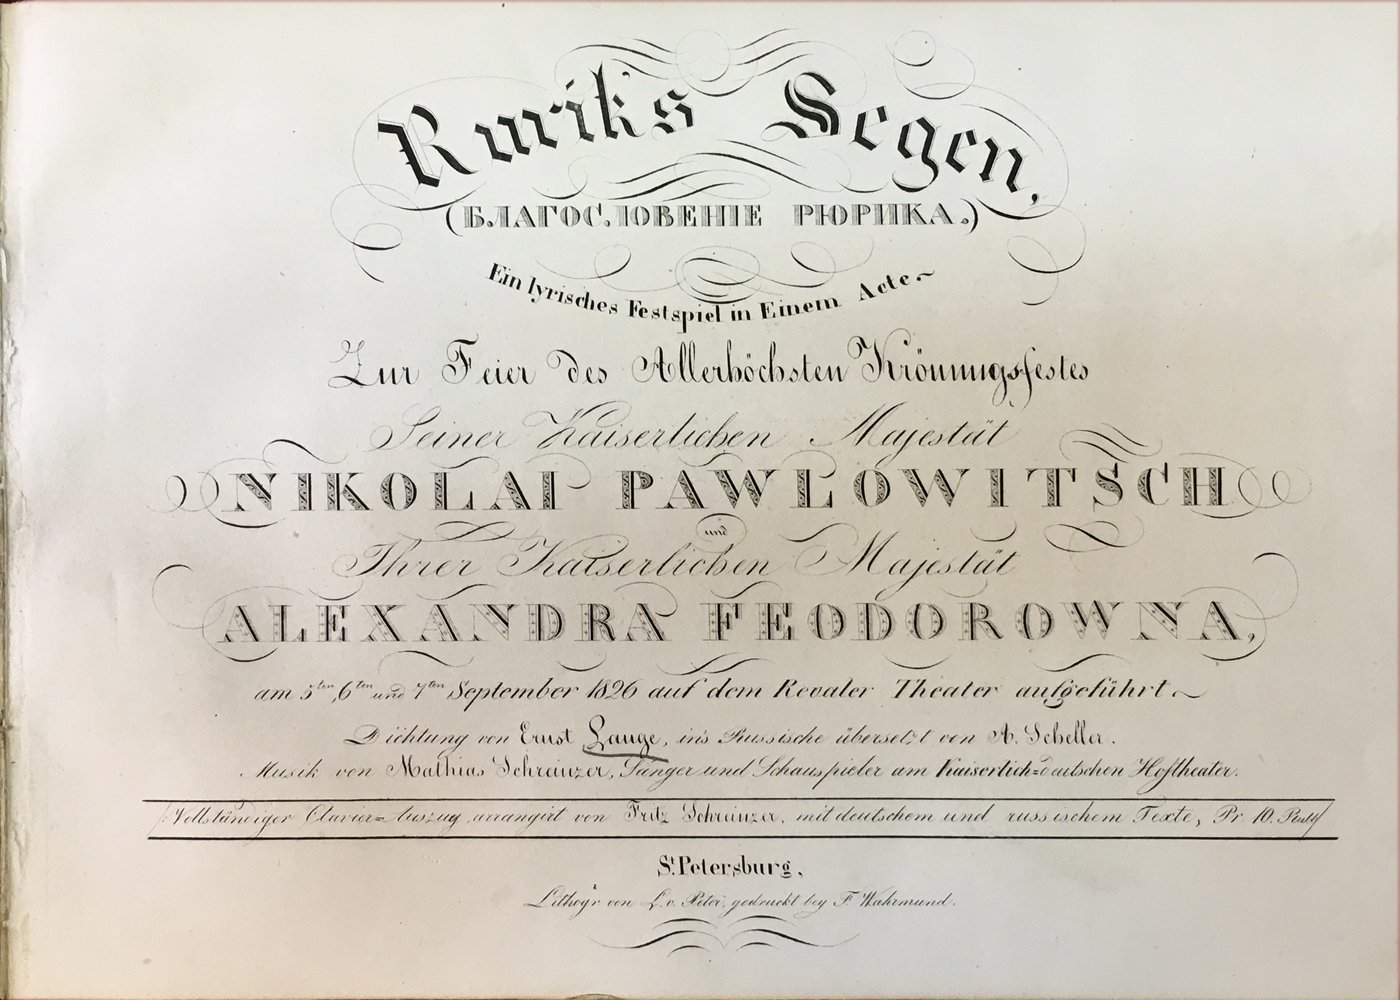 Ruriks Segen,
(БЛАГОСЛОВЕНІЕ РЮРИКА.)
Ein lyrisches Festspiel in Einem Acte.
Zur Feier des Allerhöchsten Krönungsfestes
Seiner Kaiserlichen Majestät
NIKOLAI PAWLOWITSCH
und
Ihrer Kaiserlichen Majestät
ALEXANDRA FEODOROWNA,
am 5ten, 6ten und 7ten September 1826 auf dem Revaler Theater aufgeführt.
Dichtung von Ernst Lange, in's Russische übersetzt von A. Scheller.
Musik von Mathias Schreinzer, Sänger und Schauspieler am Kaiserlich=deutschen Hoftheater.
Vollständiger Clavier=Auszug arrangirt von Fritz Schreinzer, mit deutschem und russischem Texte, Pr. 10.
St. Petersburg.
Lithogr. von L. v. Peter, gedruckt bey F. Wahrmund.